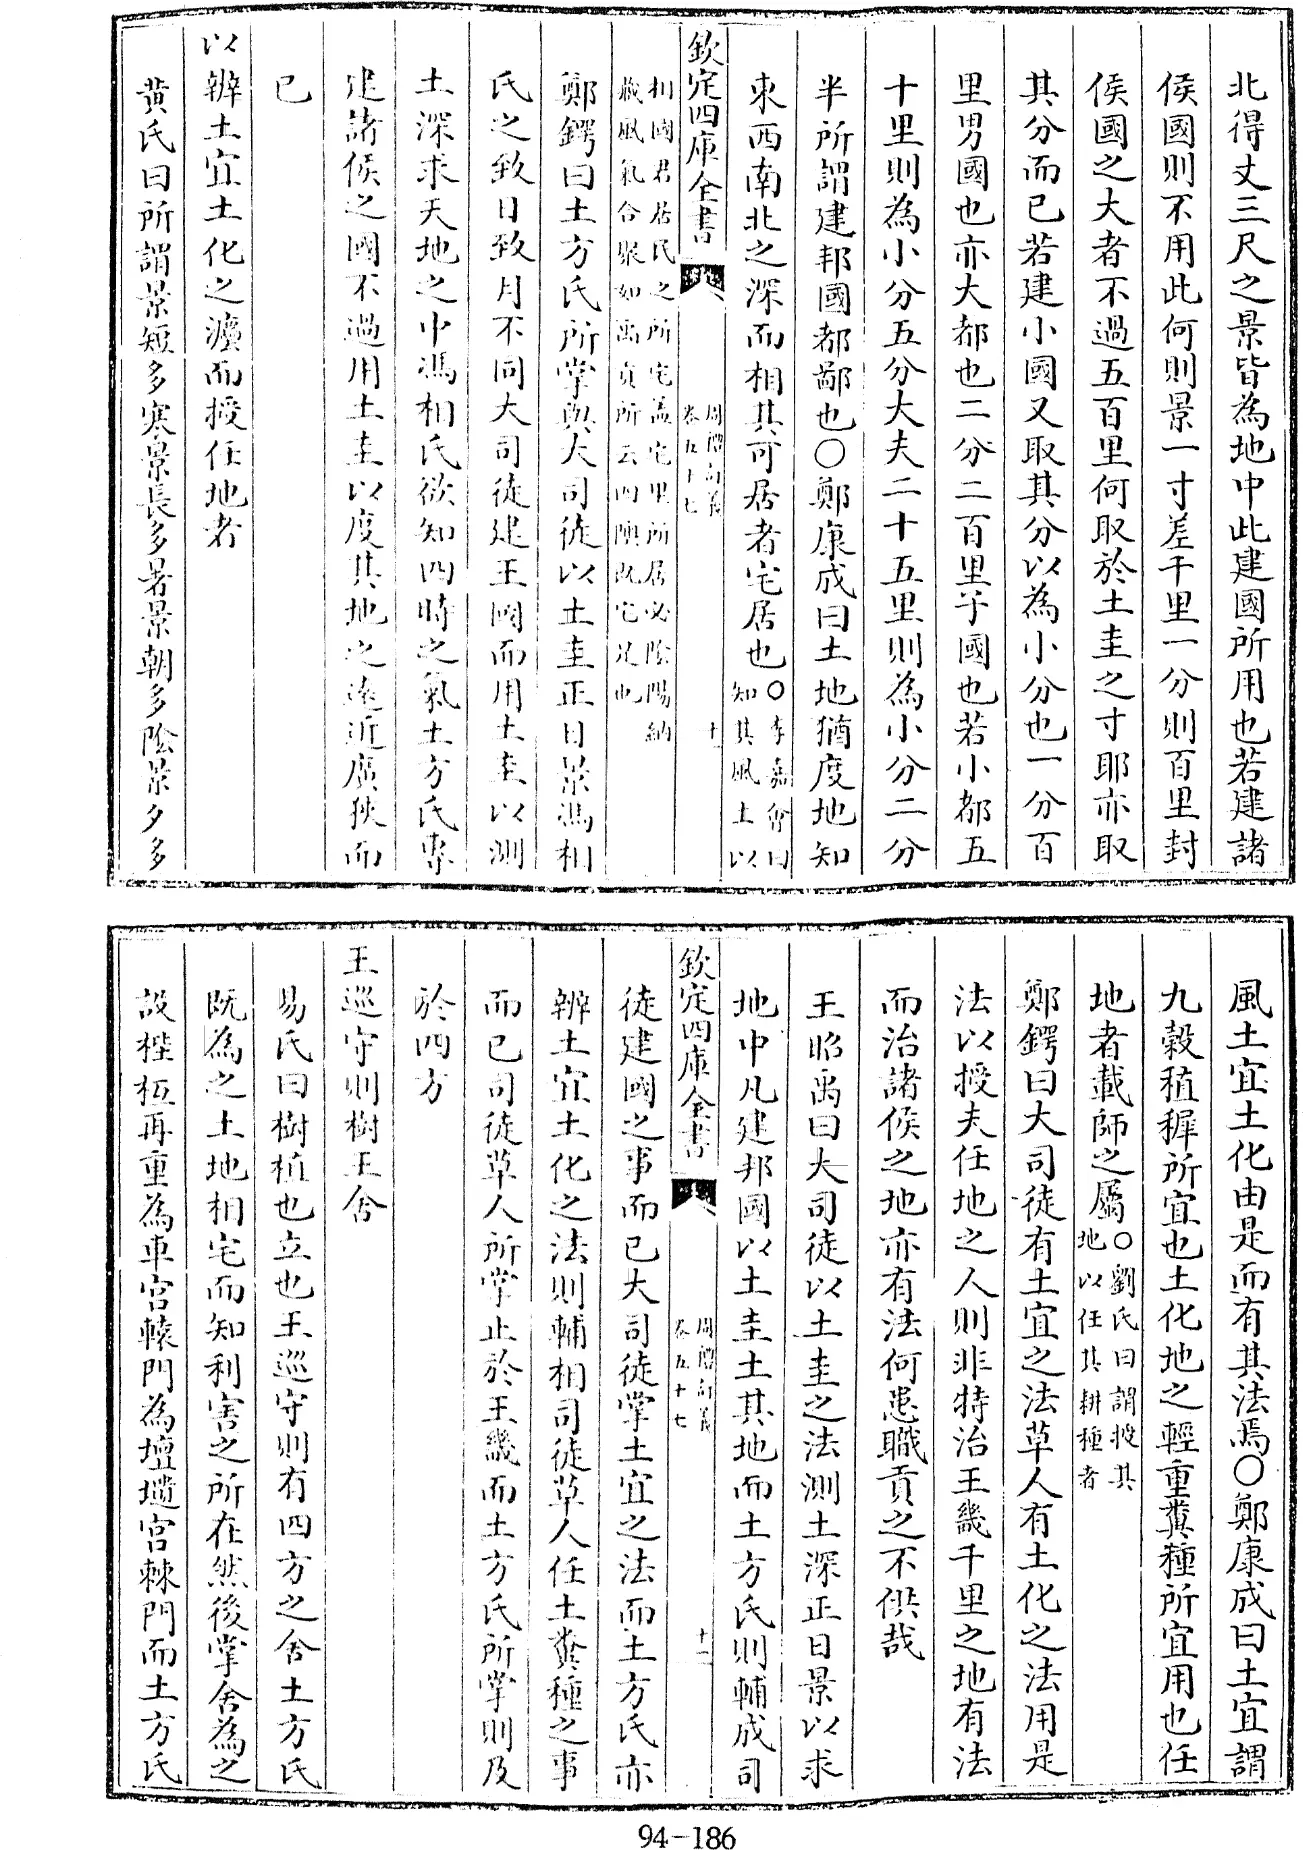 北得丈三尺之景皆為地中此建國所用也若建諸
侯國則不用此何則景一寸差千里一分則百里封
侯國之大者不過五百里何取於土圭之寸耶亦取
其分而已若建小國又取其分以為小分也一分百
里男國也亦大都也二分二百里子國也若小都五
十里則為小分五分大夫二十五里則為小分二分
半所謂建邦國都鄙也○鄭康成曰土地猶度地知
東西南北之深而相其可居者宅居也○李嘉會曰
知其風土以
欽定四庫全書
周禮訂義
卷五十七
十一
相國君居民之所宅蓋宅里所居必陰陽納
藏風氣合聚如禹貢所云四隩既宅是也
鄭鍔曰土方氏所掌與大司徒以土圭正日景馮相
氏之致日致月不同大司徒建王國而用土圭以測
土深求天地之中馮相氏欲知四時之氣土方氏專
建諸侯之國不過用土圭以度其地之遠近廣狹而
已
以辨土宜土化之灋而授任地者
黃氏曰所謂景短多寒景長多暑景朝多陰景夕多
風土宜土化由是而有其法焉○鄭康成曰土宜謂
九穀稙穉所宜也土化地之輕重糞種所宜用也任
地者載師之屬○劉氏曰謂授其
地以任其耕種者
鄭鍔曰大司徒有土宜之法草人有土化之法用是
法以授夫任地之人則非特治王畿千里之地有法
而治諸侯之地亦有法何患職貢之不供哉
王昭禹曰大司徒以土圭之法測土深正日景以求
地中凡建邦國以土圭土其地而土方氏則輔成司
欽定四庫全書
周禮訂義
卷五十七
十二
徒建國之事而已大司徒掌土宜之法而土方氏亦
辨土宜土化之法則輔相司徒草人任土糞種之事
而已司徒草人所掌止於王畿而土方氏所掌則及
於四方
王巡守則樹王舍
易氏曰樹植也立也王巡守則有四方之舍土方氏
既為之土地相宅而知利害之所在然後掌舍為之
設梐枑再重為車宮轅門為壇壝宮棘門而土方氏
94-186